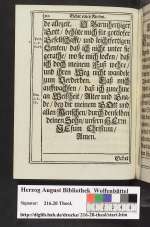 Gebet eines Kindes.
de allezeit. O Barmhertziger
Gott, behüte mich für gottloser
Gesellschafft, und leichtfertigen
Leuten, daß ich nicht unter sie
gerathe, wo sie mich locken, daß
ich doch meinem Fuß wehre,
und ihren Weg nicht wandele
zum Verderben. Laß mich
auffwachsen, daß ich zunehme
an Weißheit, Alter und Gna-
de, bey dir meinem Gott und
allen Menschen, durch denselben
deinen Sohn, unsern HErrn
JEsum Christum,
Amen.
Gebet
Herzog August Bibliothek Wolfenbüttel
Signatur: 216.20 Theol.
http://diglib.hab.de/drucke/216-20-theol/start.htm